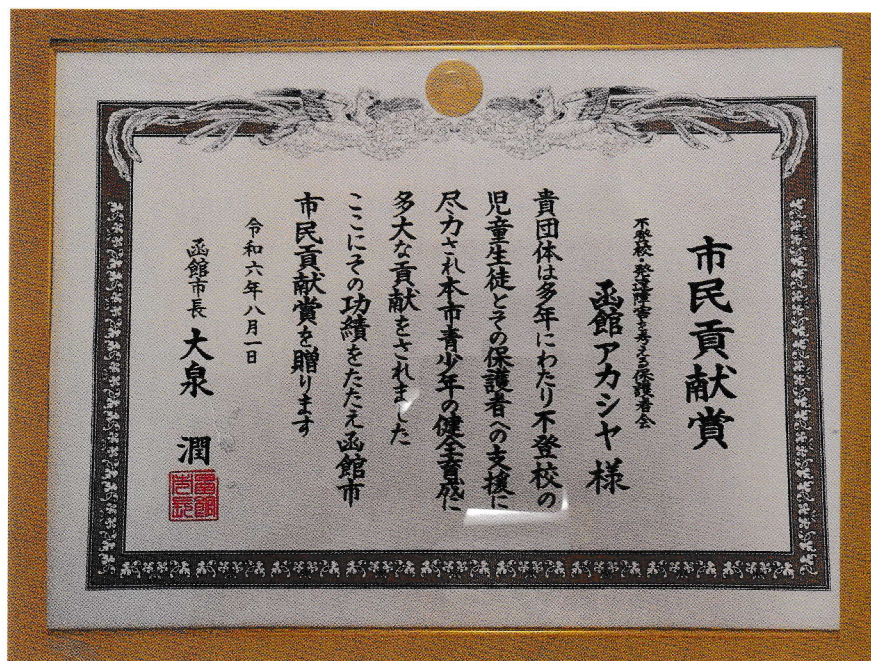 市民貢献賞
不登校・発達障害を考える保護者会
函館アカシヤ 様
貴団体は多年にわたり不登校の
児童生徒とその保護者への支援に
尽力され本市青少年の健全育成に
多大な貢献をされました
ここにその功績をたたえ函館市
市民貢献賞を贈ります
令和六年八月一日
函館市長 大泉 潤